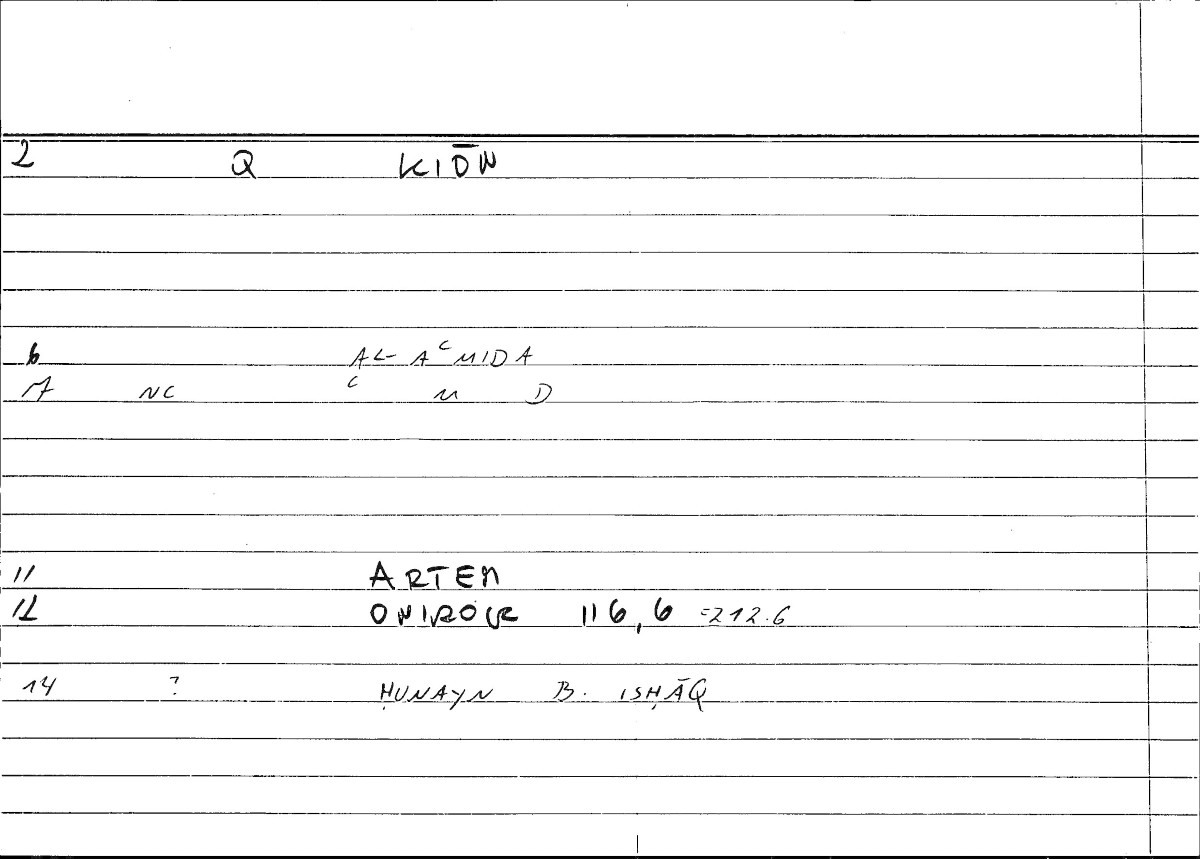 2 Q KIŌN
6 AL-AʿMIDA
7 NC ʿ M D
11 ARTEM
12 ONIROCR 116,6 =212.6
14 ? ḤUNAYN B. ISḤĀQ